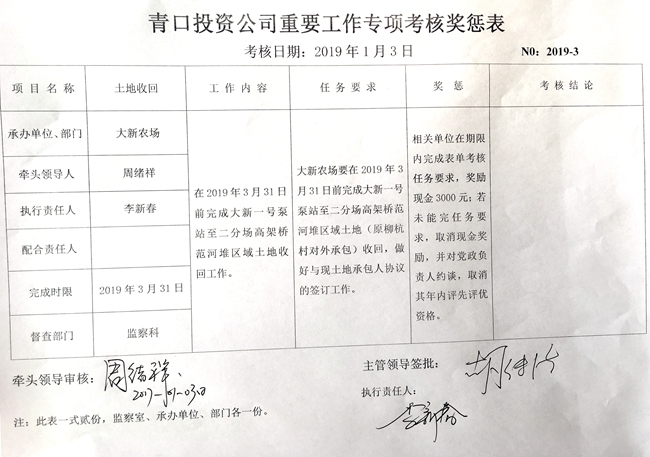 青口投资公司重要工作专项考核奖惩表
考核日期：2019 年 1 月 3 日 N0：2019-3
项 目 名 称 土地收回 工 作 内 容 任 务 要 求 奖 惩 考 核 结 论
承办单位、部门 大新农场
牵头领导人 周绪祥
执行责任人 李新春
配合责任人
完成时限 2019 年 3 月 31 日
督查部门 监察科
在 2019 年 3 月 31 日
前完成大新一号泵
站至二分场高架桥
范河堆区域土地收
回工作。
大新农场要在 2019 年 3
月 31 日前完成大新一号
泵站至二分场高架桥范
河堆区域土地（原柳杭
村对外承包）收回，做
好与现土地承包人协议
的签订工作。
相关单位在期限
内完成表单考核
任务要求，奖励
现金 3000 元；若
未能完任务要
求，取消现金奖
励，并对党政负
责人约谈，取消
其年内评先评优
资格。
牵头领导审核： 周绪祥
主管领导签批：
执行责任人：
李新春
注：此表一式贰份，监察室、承办单位、部门各一份。